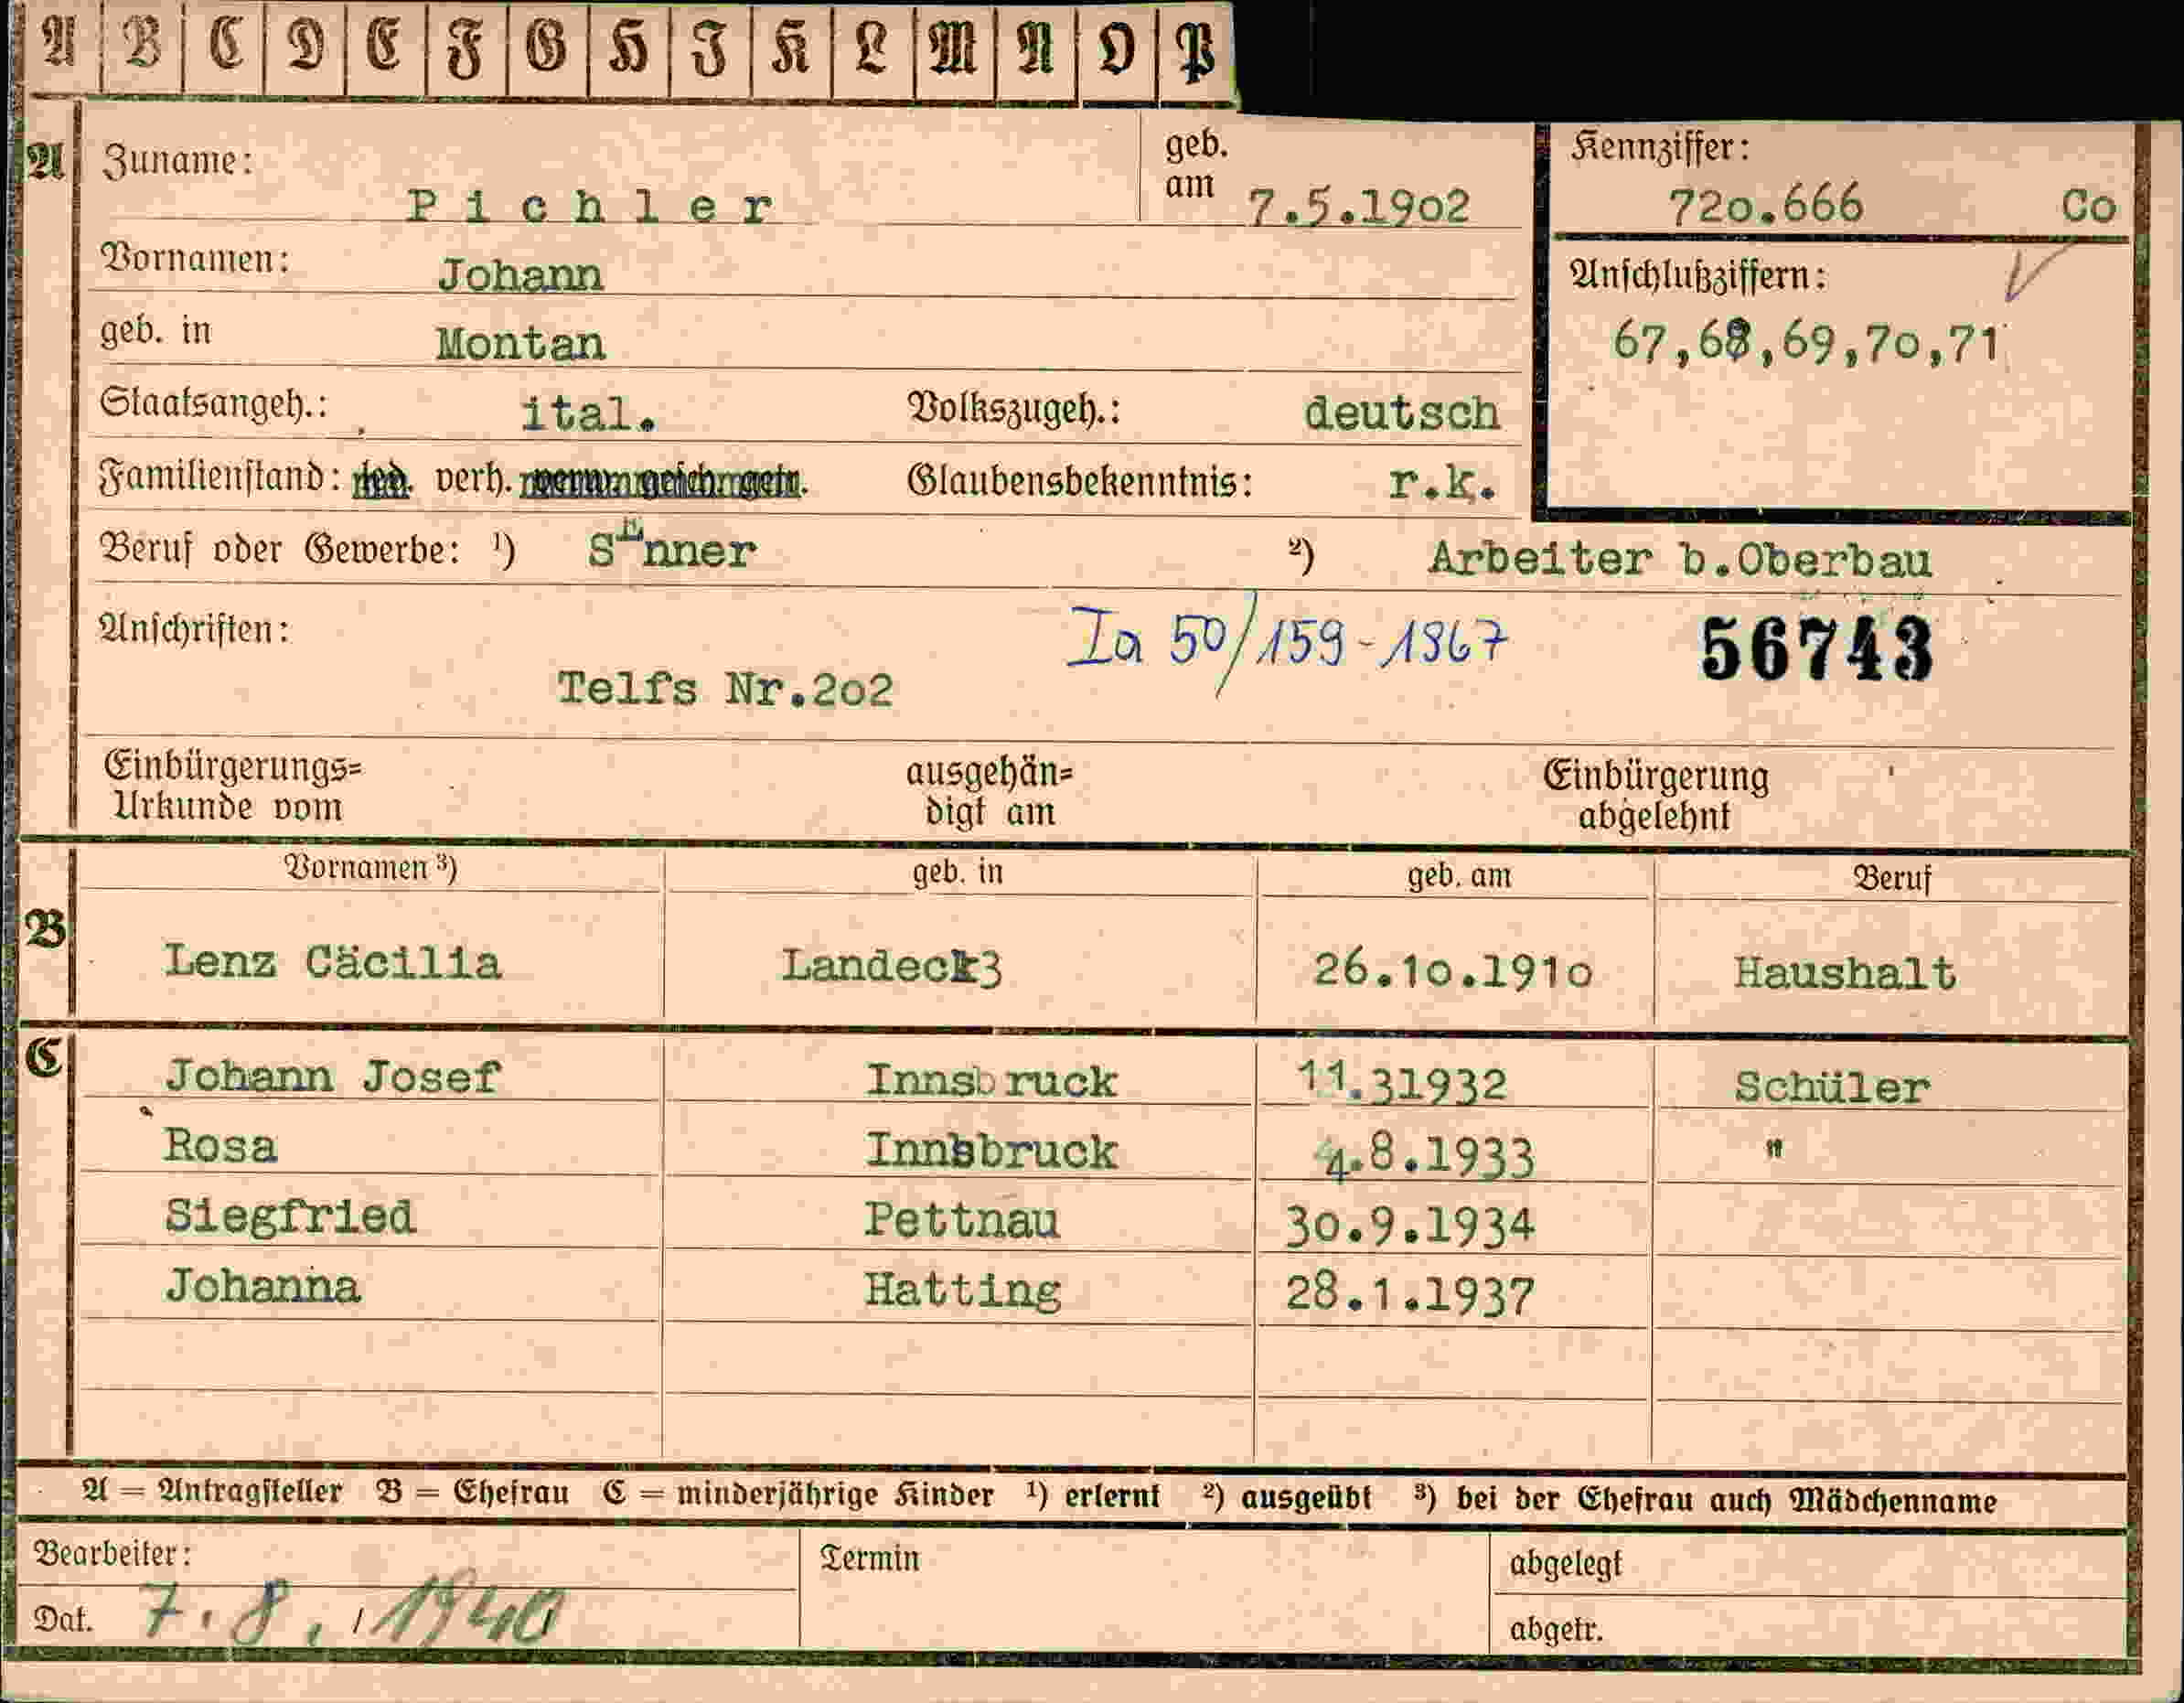 A B C D E F G H I K L M N O P
A Zuname: Pichler geb. am 7.5.1902 Kennziffer: 720.666 Co
Vornamen: Johann Anschlußziffern:
geb. in Montan 67,68,69,70,71
Staatsangeh.: ital. Volkszugeh.: deutsch
Familienstand: led. verh. verw. gesch. getr. Glaubensbekenntnis: r.k.
Beruf oder Gewerbe: ¹) Senner ²) Arbeiter b.Oberbau
Anschriften: Ia 50/159-1967 56743
Telfs Nr.202
Einbürgerungs= Urkunde vom ausgehän= digt am Einbürgerung abgelehnt
Vornamen ³) geb. in geb. am Beruf
B Lenz Cäcilia Landeck3 26.10.1910 Haushalt
C Johann Josef Innsbruck 11.31932 Schüler
Rosa Innsbruck 4.8.1933 "
Siegfried Pettnau 30.9.1934
Johanna Hatting 28.1.1937
A = Antragsteller B = Ehefrau C = minderjährige Kinder ¹) erlernt ²) ausgeübt ³) bei der Ehefrau auch Mädchenname
Bearbeiter: Termin abgelegt
Dat. 7.8./1940 abgetr.